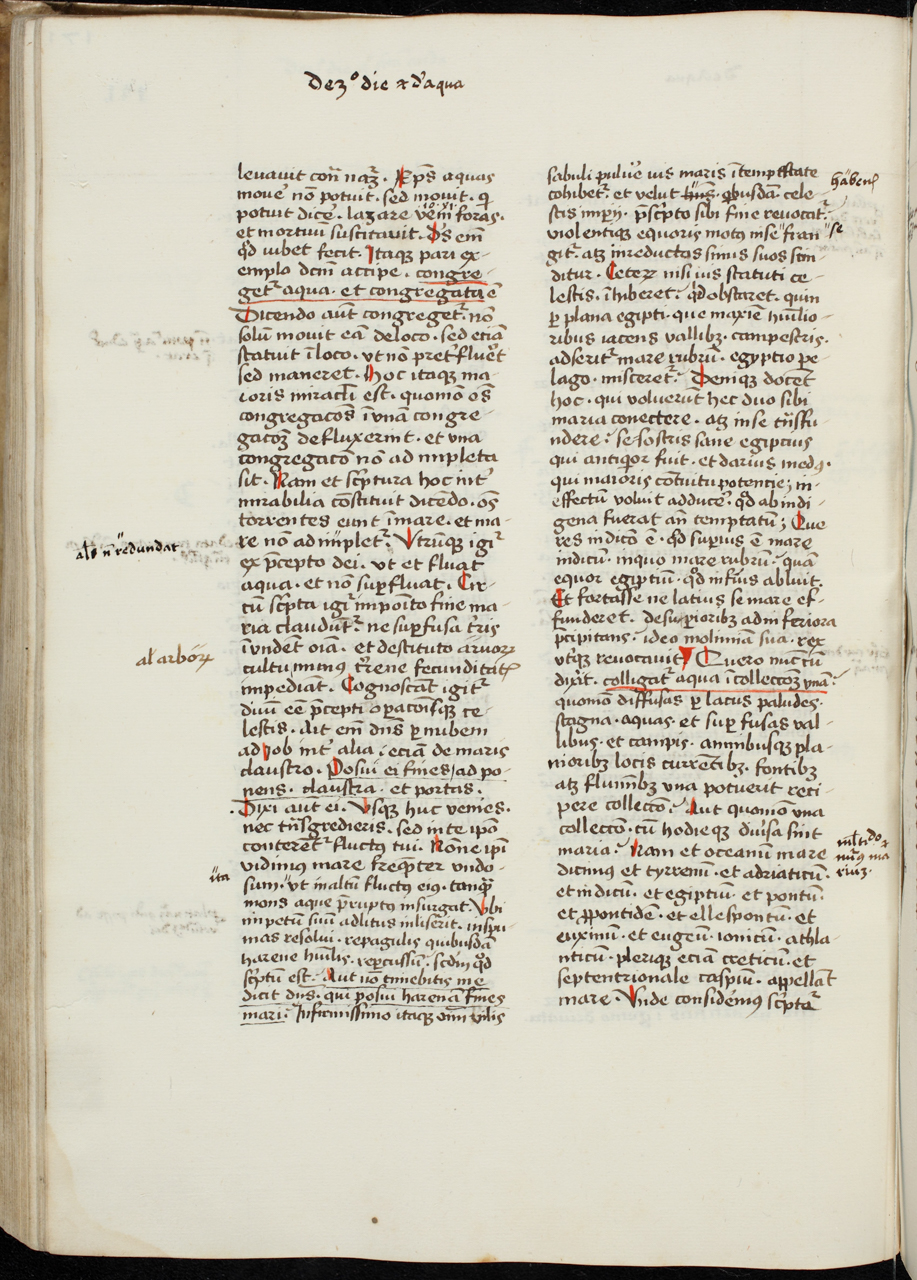 De 3º die et d'aqua
levavit con̄ naʒ. Xp̄s aquas
move' nō potuit. sed movit. q̄
potuit dice'. lazare vēni foras.
et mortuū suscitavit. D's em̄
q̊d iubet fecit. Itaque pari ex-
emplo dcm̄ accipe. congre-
get' aqua. et congregata ē
Dicendo aut̄ congreget'. nō
solū movit eā de loco. sed eciā
statuit ī loco. ut nō preterfluet
sed maneret. Hoc itaque ma-
ioris miracl'i est. quomō oēs
congregacōēs ī unā congre-
gacōʒ defluxerint. et una
congregacō nō ad impleta
sit. Nam et scriptura hoc int'
mirabilia cōstituit dicēdo. oēs
torrentes eunt ī mare. et ma-
re nō ad implet'. Utrūque igi'
al's nō redundat
ex p̄cepto dei. ut et fluat
aqua. et nō sup̄fluat. Cir-
cū scripta igi' imposito fine ma-
ria claudūt'. ne sup̄fusa t'ris
īundēt oīa. et destituto arvorꝝ
al' arborꝝ
cultu munus t'rene fecunditatꝭ
impediāt. Cognoscāt igit'
divīi eē p̄cepti opacōīsque ce-
lestis. Ait em̄ dn̄s per nubem
ad Job int' alia. eciā de maris
claustro. Posui ei fines, ad po-
nens. claustra. et portas.
Dixi aut ei. Usque huc venies.
nec trāsgredieris. sed in te ip̄o
conterēt' fluctꝰ tui. Nōne ip̄i
vidimus mare freq̄nter undo-
ita
sum. ut in altū fluctꝰ eiꝰ. tanq̄
mons aque p̄rupto insurgat. Ubi
impetum suū ad litus inliserit. in spu-
mas resolui. repagulis quibusdā
harene huīlis. rep̄cussū. scdm̄ q̊d
sc'ptū est. Aut nō timebitis me
dicit dn̄s. qui posui harenā fines
mari. Infirmissimo itaque om̄ vilis
sabuli pulve' ius maris ītempestate
habenꝭ
cohibet'. et velut quibusdā cele-
stis imp̄ij. p̄scripto sibi fine revocat'.
violentique equoris motꝰ in se fran-
se
git'. atque in reductos sinus suos scin-
ditur. Ceterꝝ nisi ius statuti ce-
lestis. īhiberet. q̊d obstaret. quin
per plana egipti. que maxīe humilio-
ribus iacens vallibꝫ. campestris.
adserit' mare rubrū. egyptio pe-
lago. misceret'. Deniqe docēt
hoc. qui voluerūt hec duo sibi
maria conectere. atque in se trāsfu-
ndere. se-sostris sane egiptius
qui antiquior fuit. et darius medꝰ.
qui maioris cōtuitu potentie; in
effectū voluit adduce'. q̊d ab indi-
gena fuerat an̄ temptatū; Que
res indicio ē. q̊d superius ē mare
indicū. in quo mare rubrū. quā
equor egiptiū. q̊d inferius abluit.
Et fortasse ne latius se mare ef-
funderet. de superioribꝫ ad inferiora
p̄cipitans. ideo molimīa sua. rex
ut'que revocavit. Quero nūc cū
dix'it. colligat' aqua ī collectōʒ unā.
quomō diffusas per lacus paludes.
stagna. aquas. et superfusas val-
libus. et campis. amnibusque pla-
nioribꝫ locis currētibꝫ. fontibꝫ
atque fluminibꝫ una potuerit reci-
pere collectō. Aut quomō una
collectō. cū hodieque diversa sint
maria. Nam et oceanū mare
multitudo et nu'ꝰ mariuʒ
dicimus et tyrrenū. et adriaticū.
et indicū. et egiptiū. et pontū.
et p̄pontidē. et ellespontū. et
euxinū. et eugeū. ionicū. athla-
nticū. plerique eciā creticū. et
septentrionale caspiū. appellāt
mare. Unde considemꝰ sc'pta'